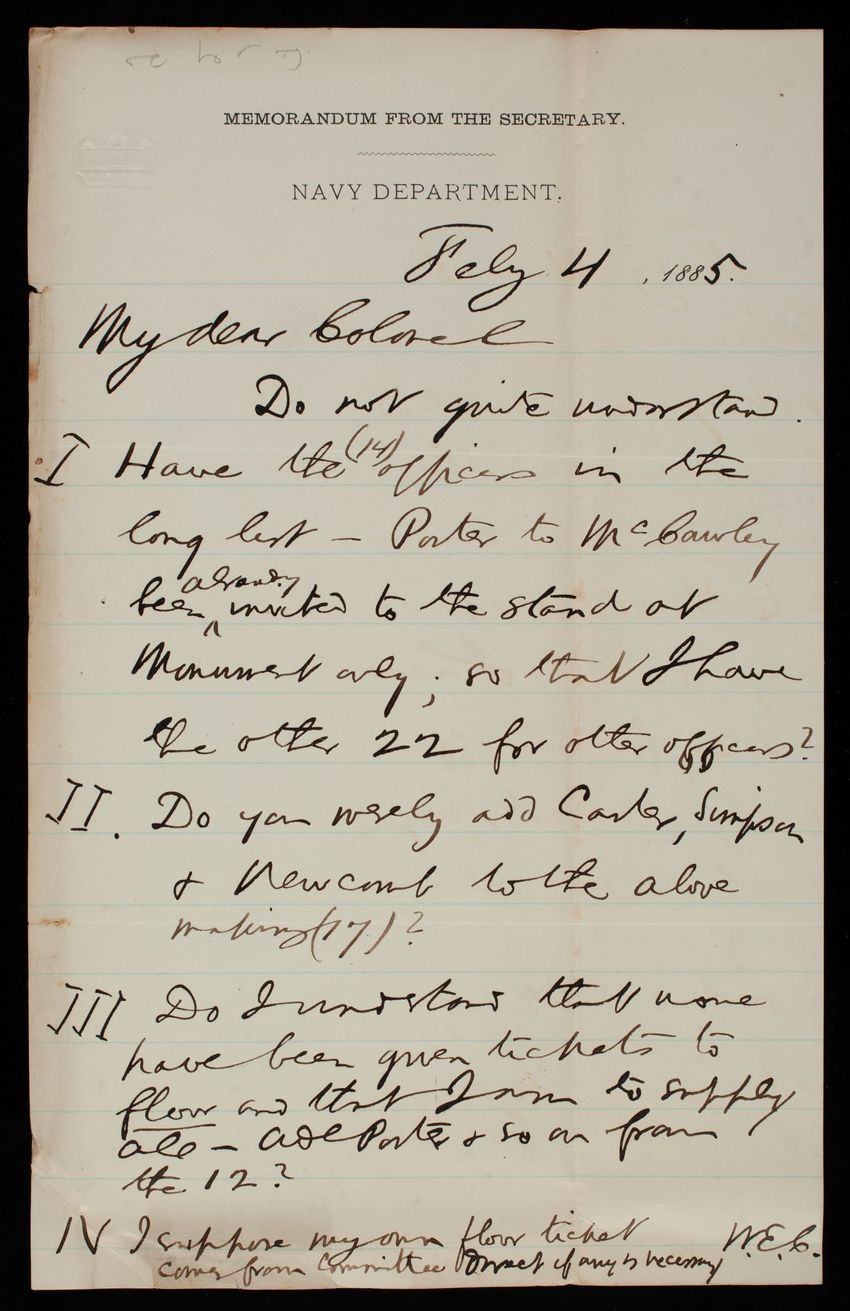 MEMORANDUM FROM THE SECRETARY.
NAVY DEPARTMENT.
Feby 4, 1885.
My dear Colonel
Do not quite understand.
I Have the (14) officers in the
long list – Porter to McCawley
been already invited to the stand at
Monument only; so that I have
the other 22 for other officers?
II. Do you merely add Carter, Simpson
& Newcomb to the above
making (17)?
III Do I understand that none
have been given tickets to
floor and that I am to supply
all – Adl Porter & so on from
the 12?
IV I suppose my own floor ticket
comes from Committee direct if any is necessary
W.E.C.